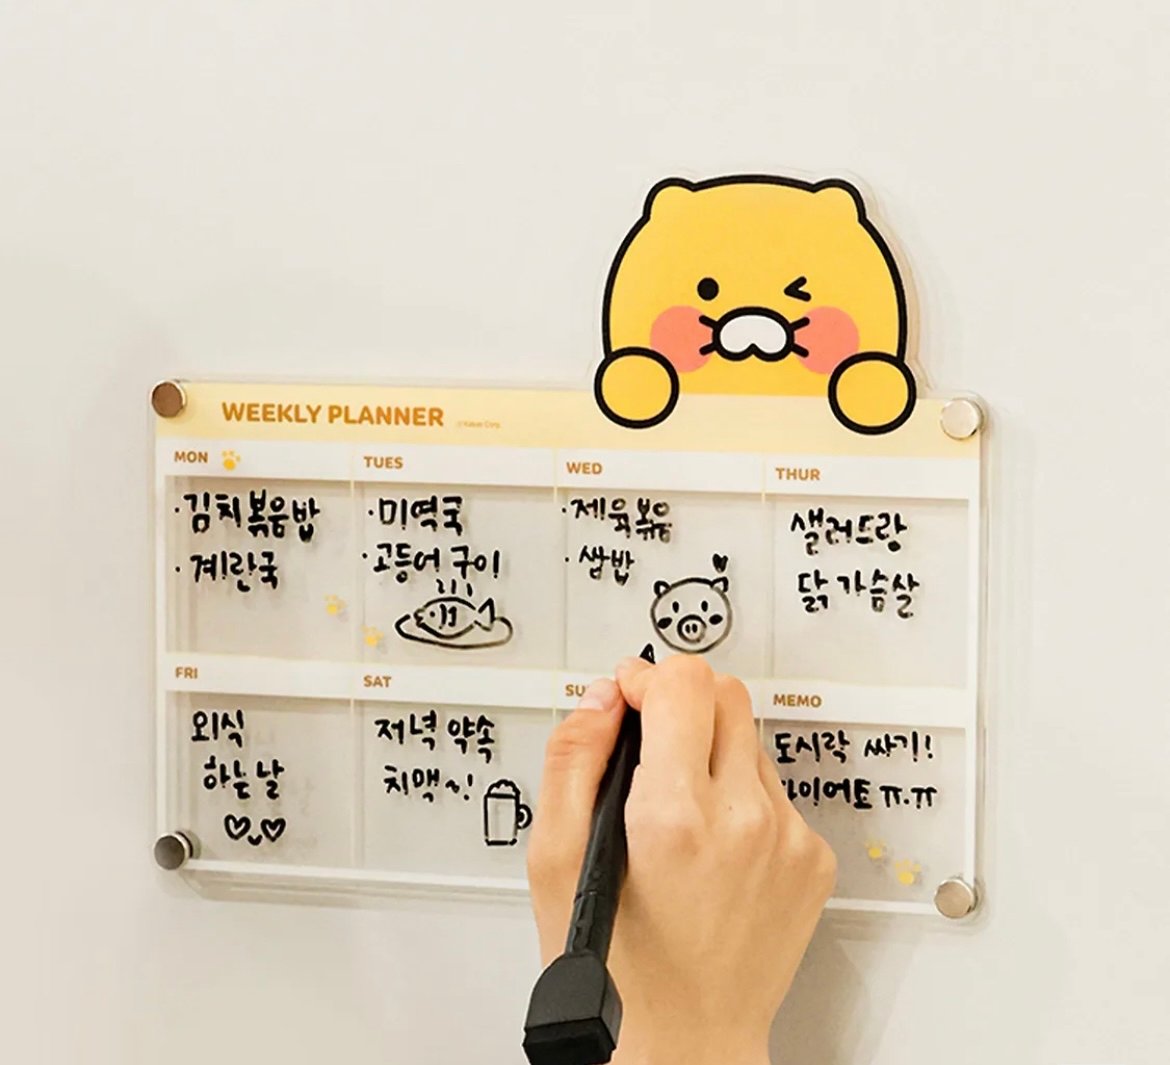 WEEKLY PLANNER
© Kakao Corp.
MON
·김치볶음밥
·계란국
TUES
·미역국
·고등어 구이
WED
·제육볶음
·쌈밥
THUR
샐러드랑
닭가슴살
FRI
외식
하는날
SAT
저녁 약속
치맥~!
MEMO
도시락 싸기!
ㅠ.ㅠ